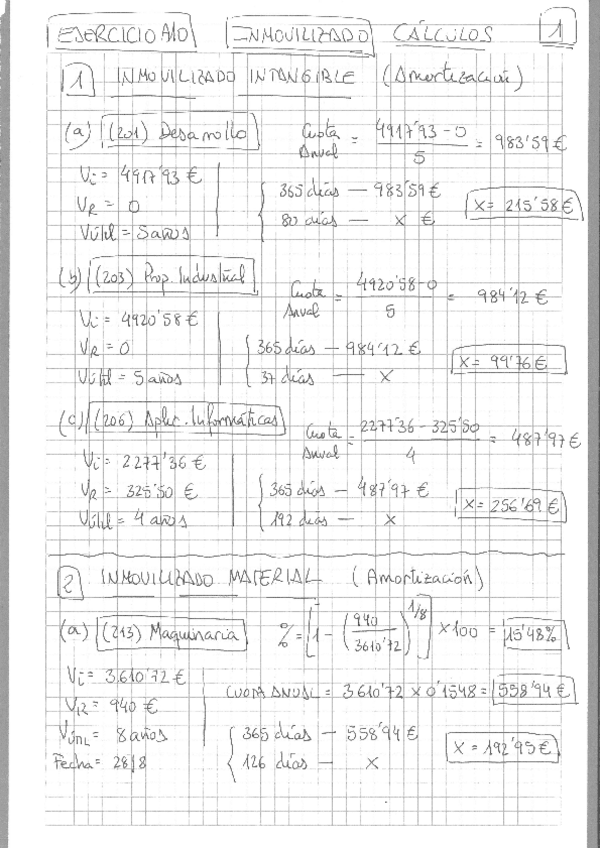 EJERCICIO A10 INMOVILIZADO CÁLCULOS 1
1 INMOVILIZADO INTANGIBLE (Amortización)
(a) (201) Desarrollo
Cuota Anual = (4917'93 - 0) / 5 = 983'59 €
Vi = 4917'93 €
VR = 0
Vútil = 5 años
365 días — 983'59 €
80 días — X €
X = 215'58 €
(b) (203) Prop. Industrial
Cuota Anual = (4920'58 - 0) / 5 = 984'12 €
Vi = 4920'58 €
VR = 0
Vútil = 5 años
365 días — 984'12 €
37 días — X
X = 99'76 €
(c) (206) Aplic. Informáticas
Cuota Anual = (2277'36 - 325'50) / 4 = 487'97 €
Vi = 2277'36 €
VR = 325'50 €
Vútil = 4 años
365 días — 487'97 €
192 días — X
X = 256'69 €
2 INMOVILIZADO MATERIAL (Amortización)
(a) (213) Maquinaria
% = [1 - (940 / 3610'72)^1/8] × 100 = 15'48%
Vi = 3.610'72 €
VR = 940 €
VÚTIL = 8 años
Fecha = 28/8
CUOTA ANUAL = 3610'72 × 0'1548 = 558'94 €
365 días — 558'94 €
126 días — X
X = 192'95 €